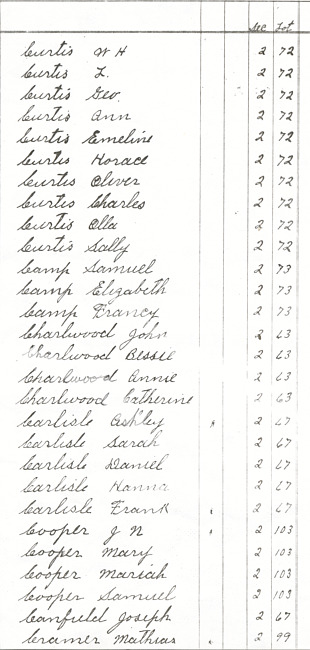 Sec Lot
Curtis W H 2 72
Curtis L. 2 72
Curtis Geo. 2 72
Curtis Ann 2 72
Curtis Emeline 2 72
Curtis Horace 2 72
Curtis Oliver 2 72
Curtis Charles 2 72
Curtis Ella 2 72
Curtis Sally 2 72
Camp Samuel 2 73
Camp Elizabeth 2 73
Camp Francy 2 73
Charlwood John 2 63
Charlwood Bessie 2 63
Charlwood Annie 2 63
Charlwood Catherine 2 63
Carlisle Ashley 2 67
Carlisle Sarah 2 67
Carlisle Daniel 2 67
Carlisle Hanna 2 67
Carlisle Frank 2 67
Cooper J N 2 103
Cooper Mary 2 103
Cooper Mariah 2 103
Cooper Samuel 2 103
Canfield Joseph 2 67
Cramer Mathias 2 99